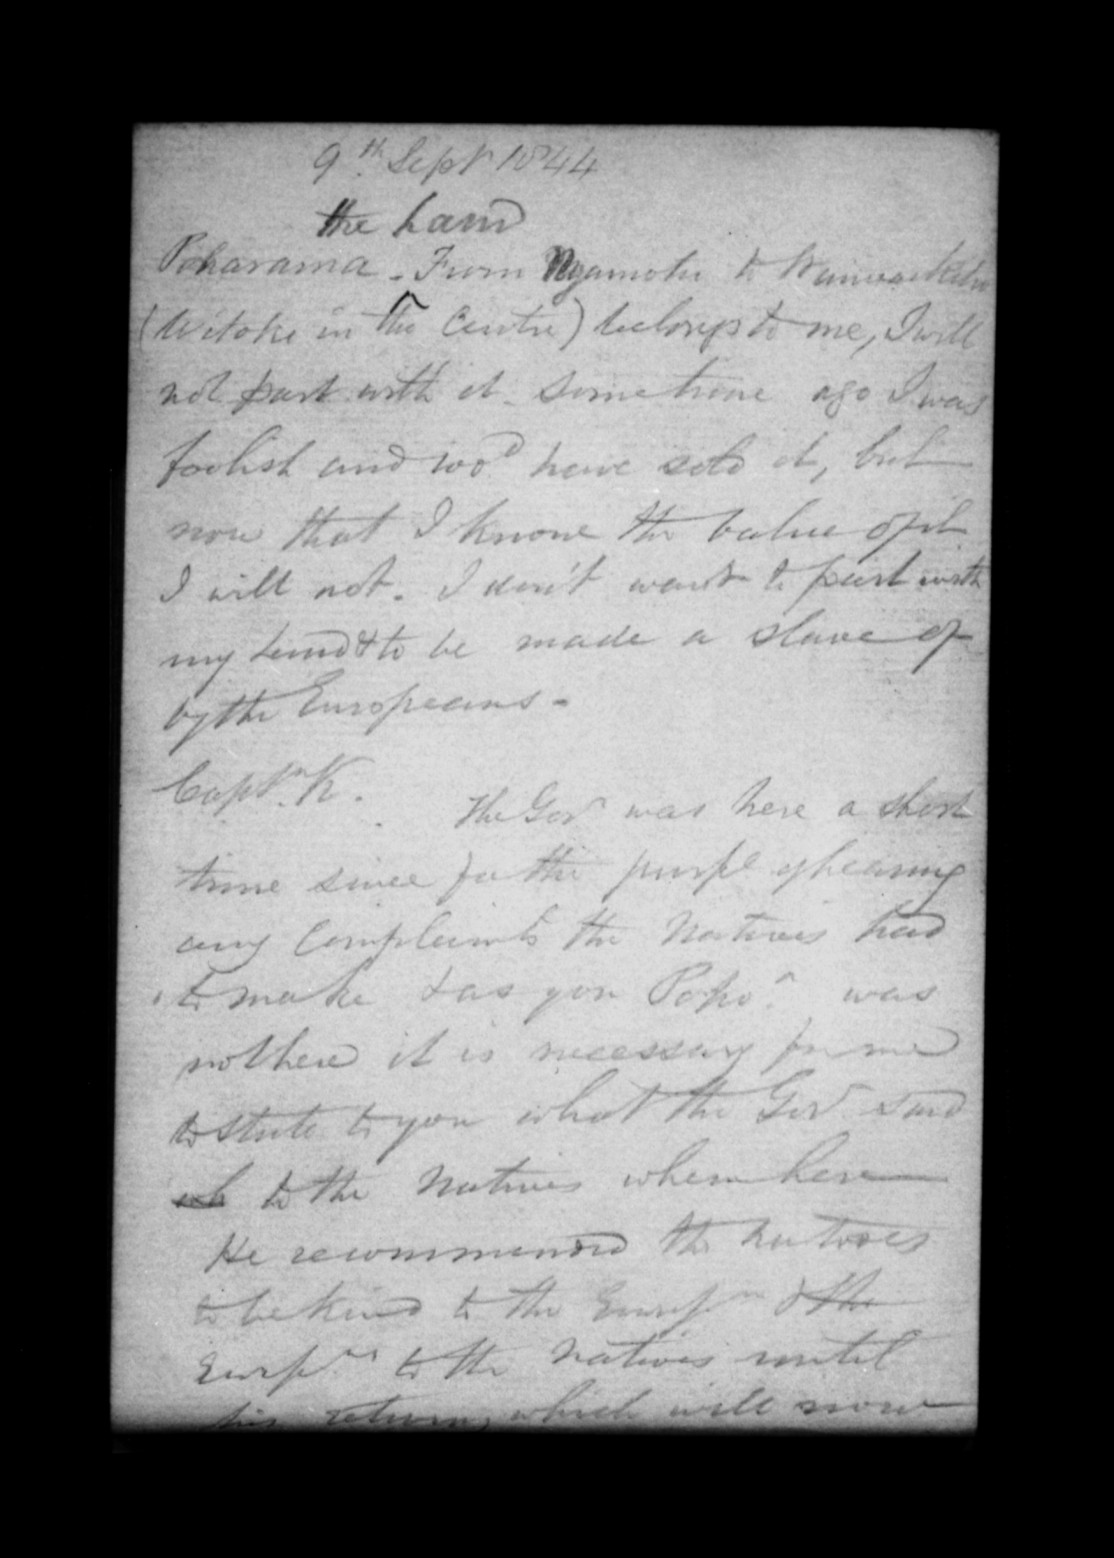 9th Sept 1844
the land
Poharama - From Ngamotu to
(Witoke in the Centre) belongs to me, I will
not part with it - sometime ago I was
foolish and wod have sold it, but
now that I know the value of it
I will not. I don't want to part with
my land & to be made a slave of
by the Europeans -
Captn. K.
The Govr was here a short
time since for the purpe of hearing
any Complaints the Natives had
to make & as you Poha was
not here it is necessary for me
to state to you what the Govr said
to the Natives when here
He recommended the natives
to be kind to the Eurpns & the
Eurpns to the Natives until
his return, which will now